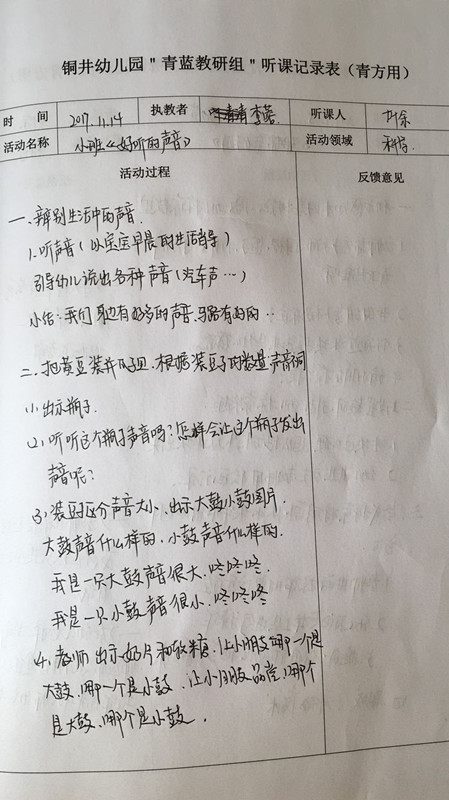 铜井幼儿园"青蓝教研组"听课记录表（青方用）
时间 2017.11.14 执教者 李蓉 听课人
活动名称 小班《好听的声音》 活动领域 科学
活动过程 反馈意见
一、辨别生活中的声音.
1.听声音(以宝宝早晨的生活
引导幼儿说出各种声音(汽车声…)
小结:我们身边有好多的声音、
二、把黄豆装进 根据装豆子的数量声音
(1)出示瓶子.
(2)听听这个瓶子声音吗?怎样会让这个瓶子发出
声音呢?
3、装豆区分声音大小、出示大鼓小鼓图片.
大鼓声音什么样的,小鼓声音什么样的.
我是一只大鼓声音很大,咚咚咚.
我是一只小鼓声音很小.咚咚咚
4、教师出示奶片和软糖,让小朋友 哪一个是
大鼓、哪一个是小鼓.让小朋友品尝,哪个
是大鼓、哪个是小鼓.